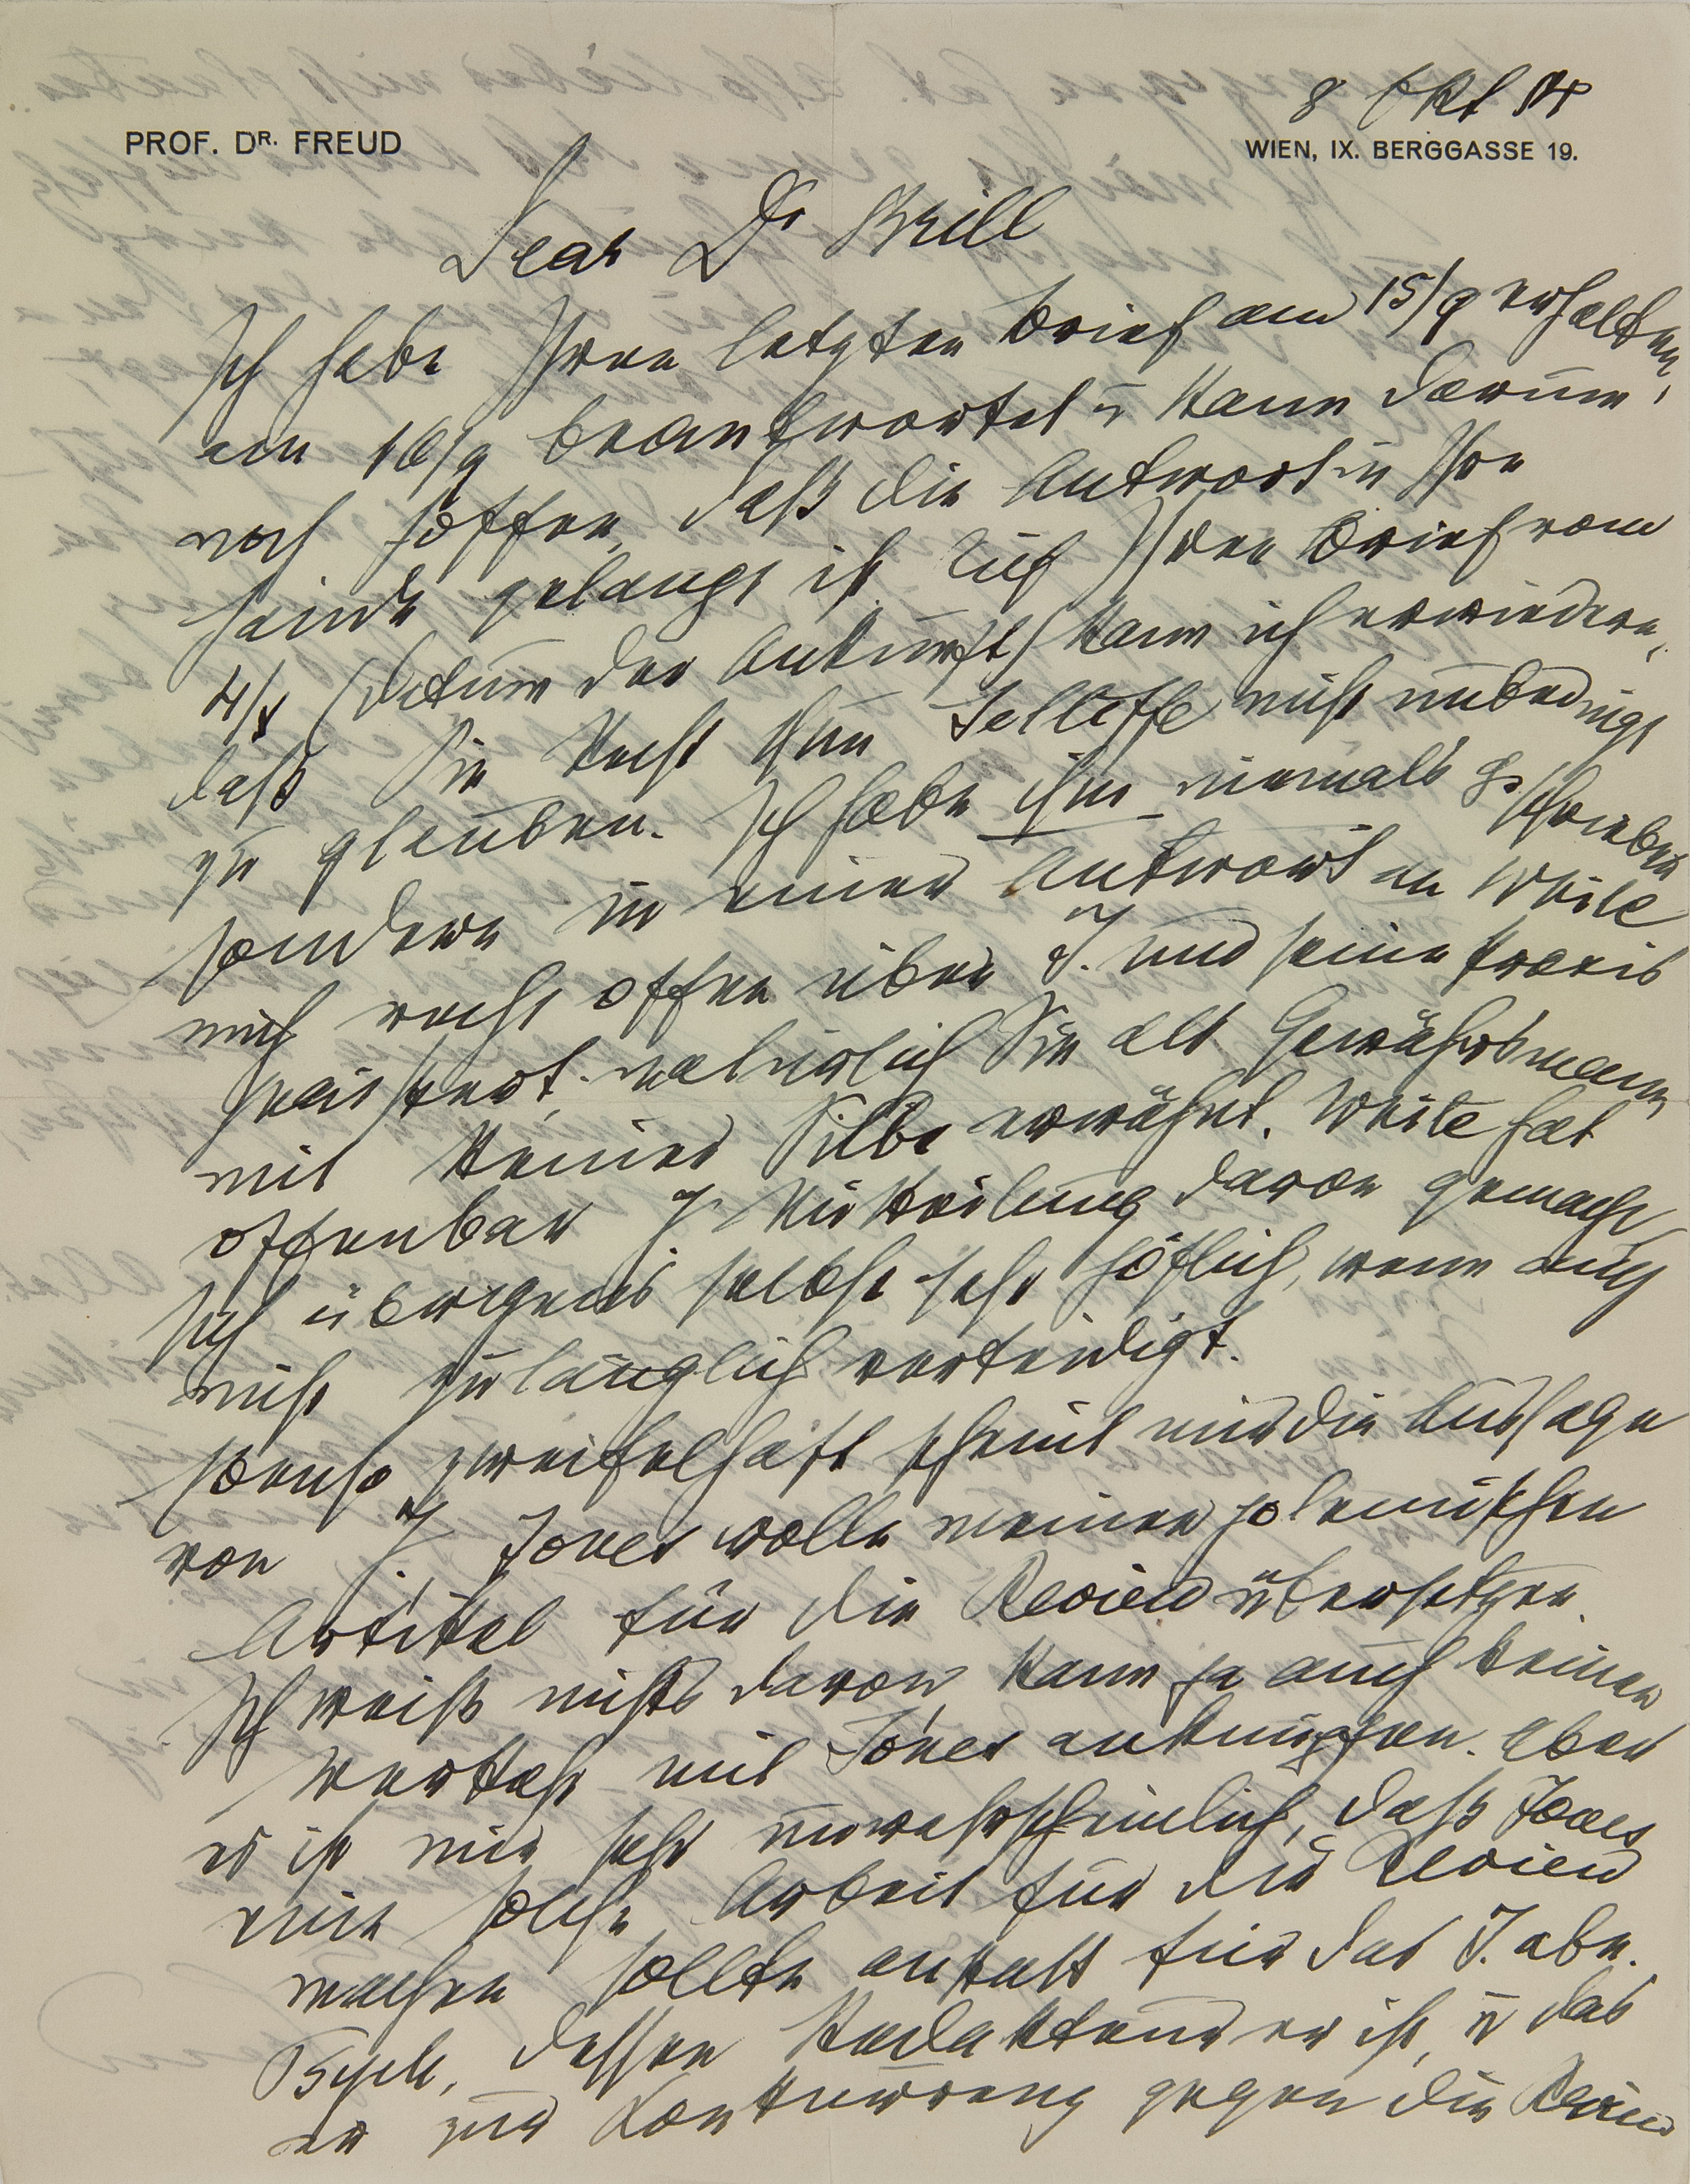 8 Okt 14
PROF. DR. FREUD
WIEN, IX. BERGGASSE 19.
Dear Dr Brill
Ich habe Ihren letzten Brief am 15/9 erhalten,
am 16/9 beantwortet u kann darum
noch hoffen, daß die Antwort in Ihre
Hände gelangt ist. Auf Ihren Brief vom
4/X (Datum der Ankunft) kann ich erwiedern,
daß Sie Recht thun Jelliffe nicht unbedingt
zu glauben. Ich habe ihm niemals geschrieben
sondern in einer Antwort an White
mich recht offen über J. und seine Praxis
geäußert, natürlich Sie als Gewährsmann
mit keiner Silbe erwähnt. White hat
offenbar J. Mitteilung davon gemacht,
sich übrigens selbst sehr höflich, wenn auch
nicht zulänglich verteidigt.
Ebenso zweifelhaft scheint mir die Aussage
von J. Jones wolle meinen polemischen
Artikel für die Review übersetzen.
Ich weiß nichts davon, kann ja auch keinen
Verkehr mit Jones anknüpfen. Aber
es ist mir sehr unwahrscheinlich, daß Jones
eine solche Arbeit für die Review
machen sollte anstatt für das J. abn.
Psych., dessen Redakteur er ist, u das
er zur Konkurrenz gegen die Review